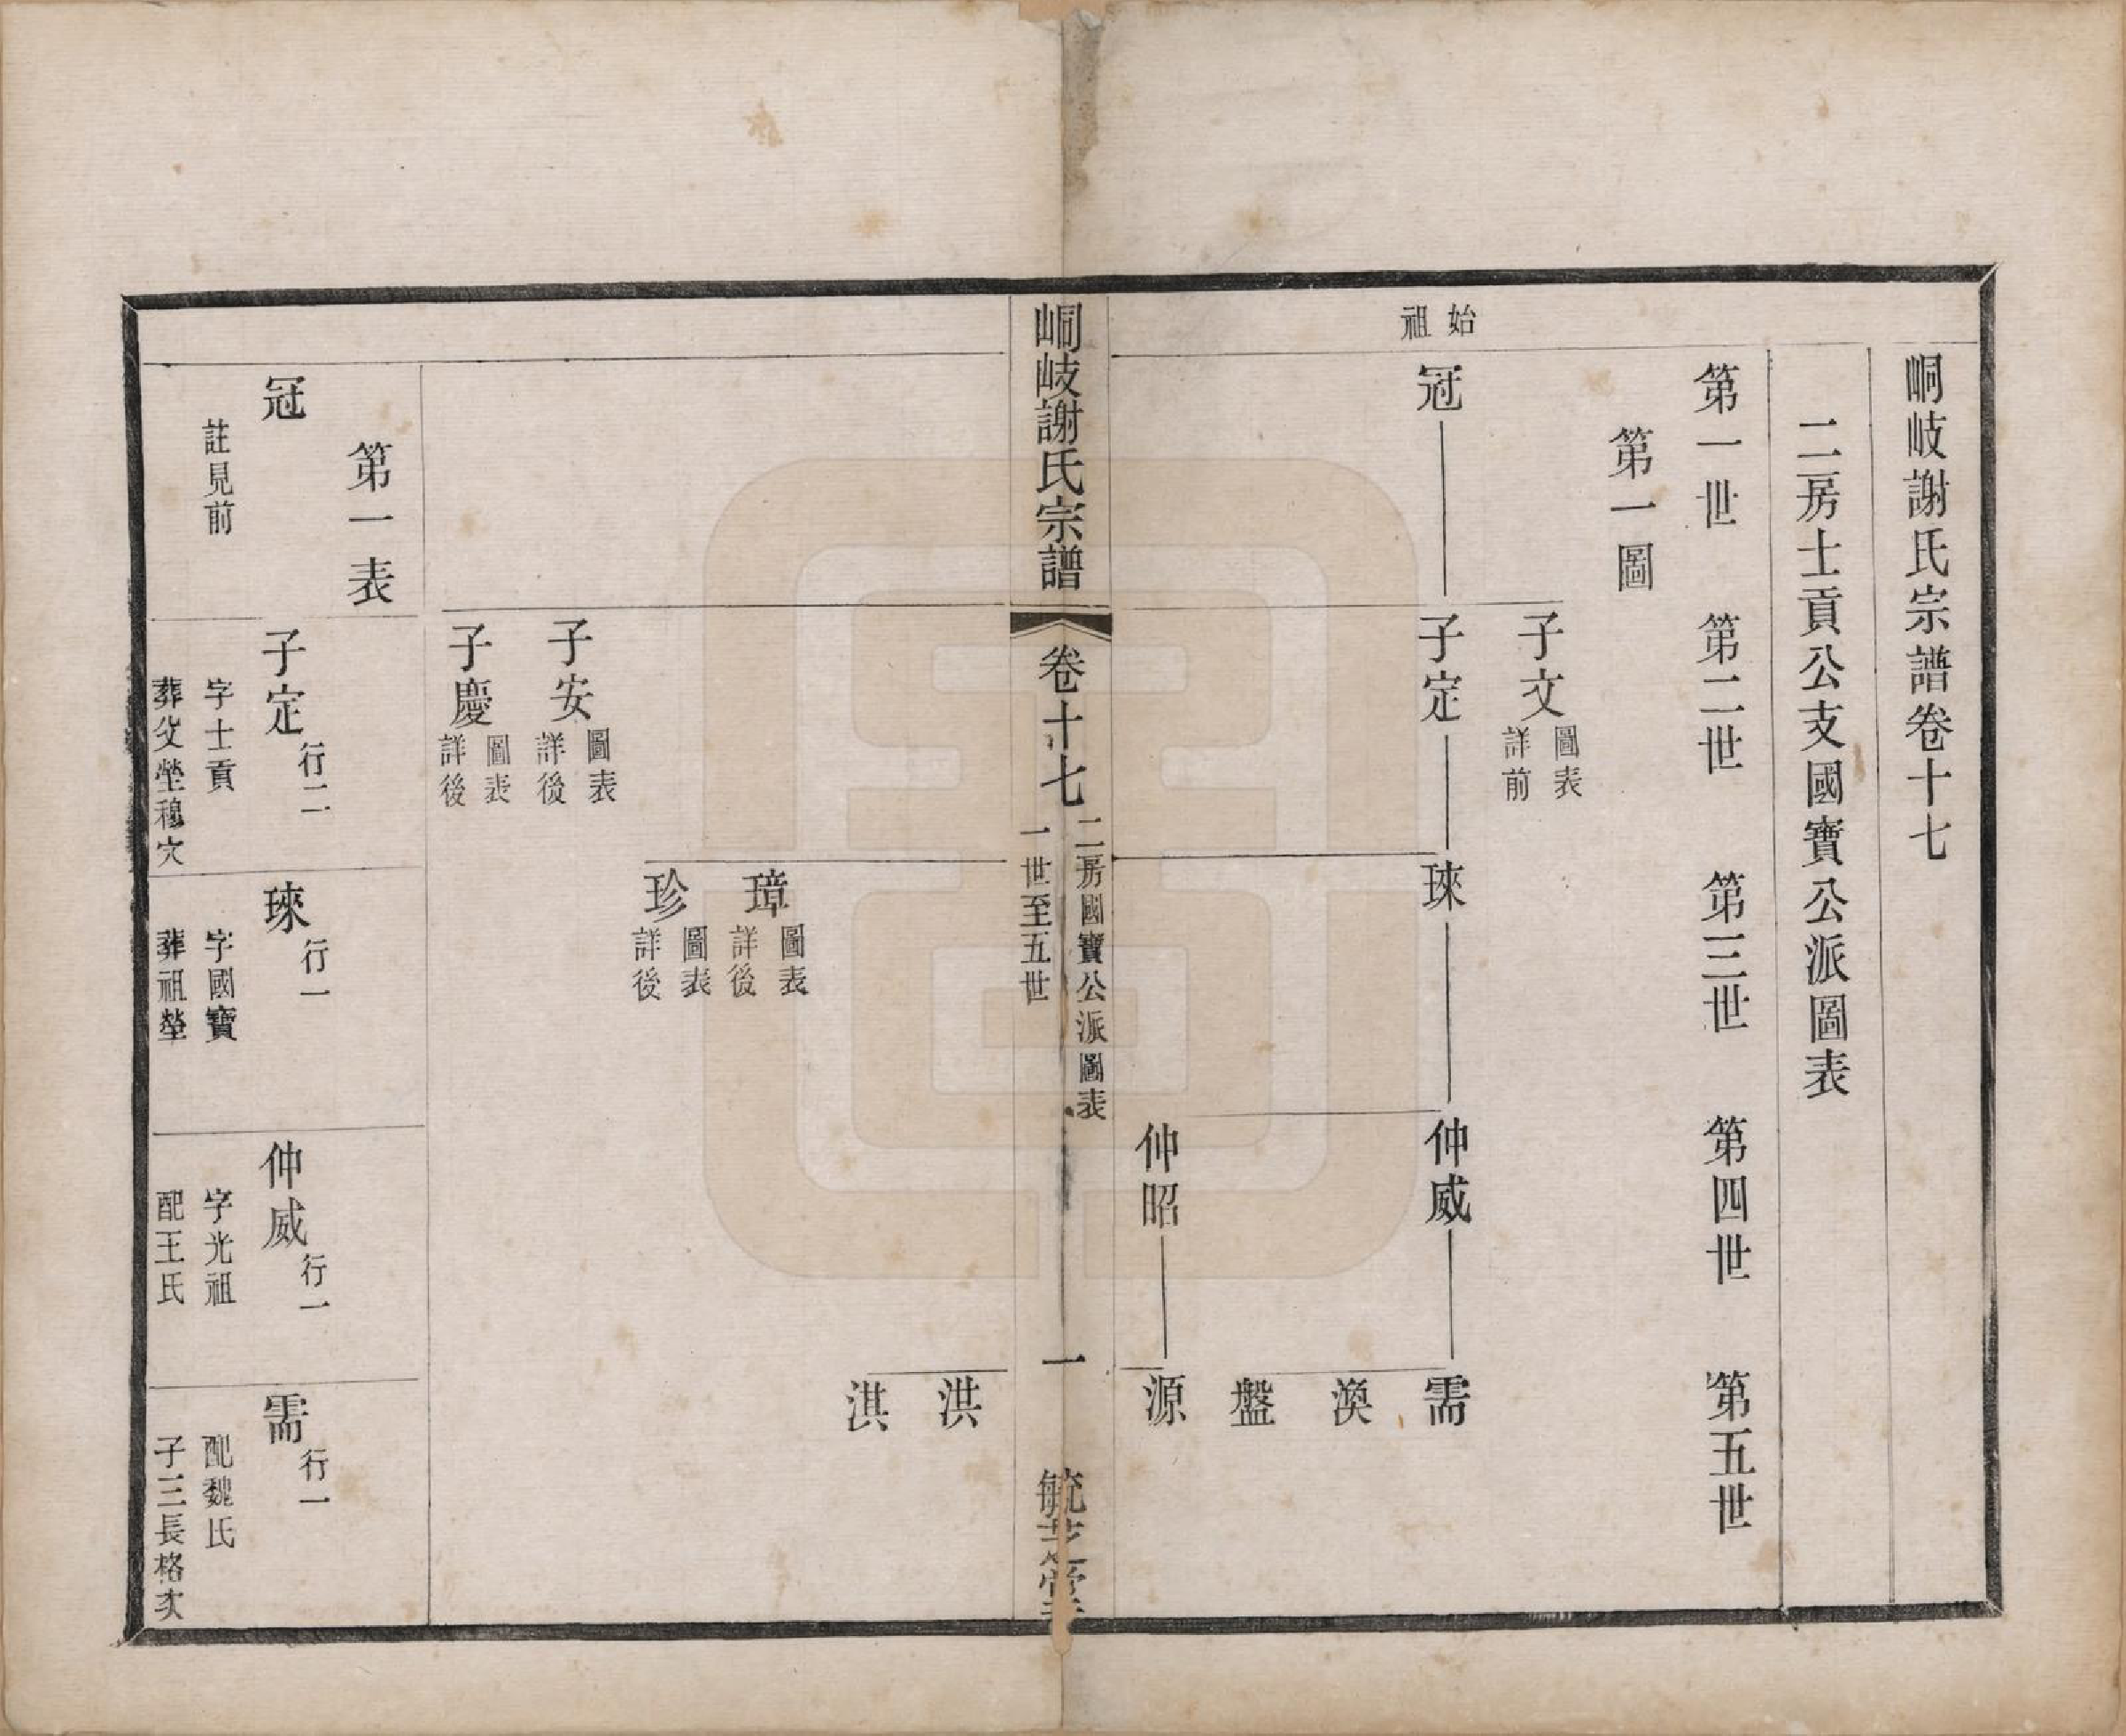 峒岐謝氏宗譜卷十七
二房士貢公支國寶公派圖表
第一世 第二世 第三世 第四世 第五世
第一圖
始祖
冠
子文 圖表詳前
子定
琜
仲威
需
渙
盤
仲昭
源
峒岐謝氏宗譜 卷十七 二房國寶公派圖表 一世至五世 一 毓芝堂
洪
淇
璋 圖表詳後
珍 圖表詳後
子安 圖表詳後
子慶 圖表詳後
第一表
冠
註見前
子定 行二
字士貢
葬父塋穆穴
琜 行一
字國寶
葬祖塋
仲威 行一
字光祖
配王氏
需 行一
配魏氏
子三長格次